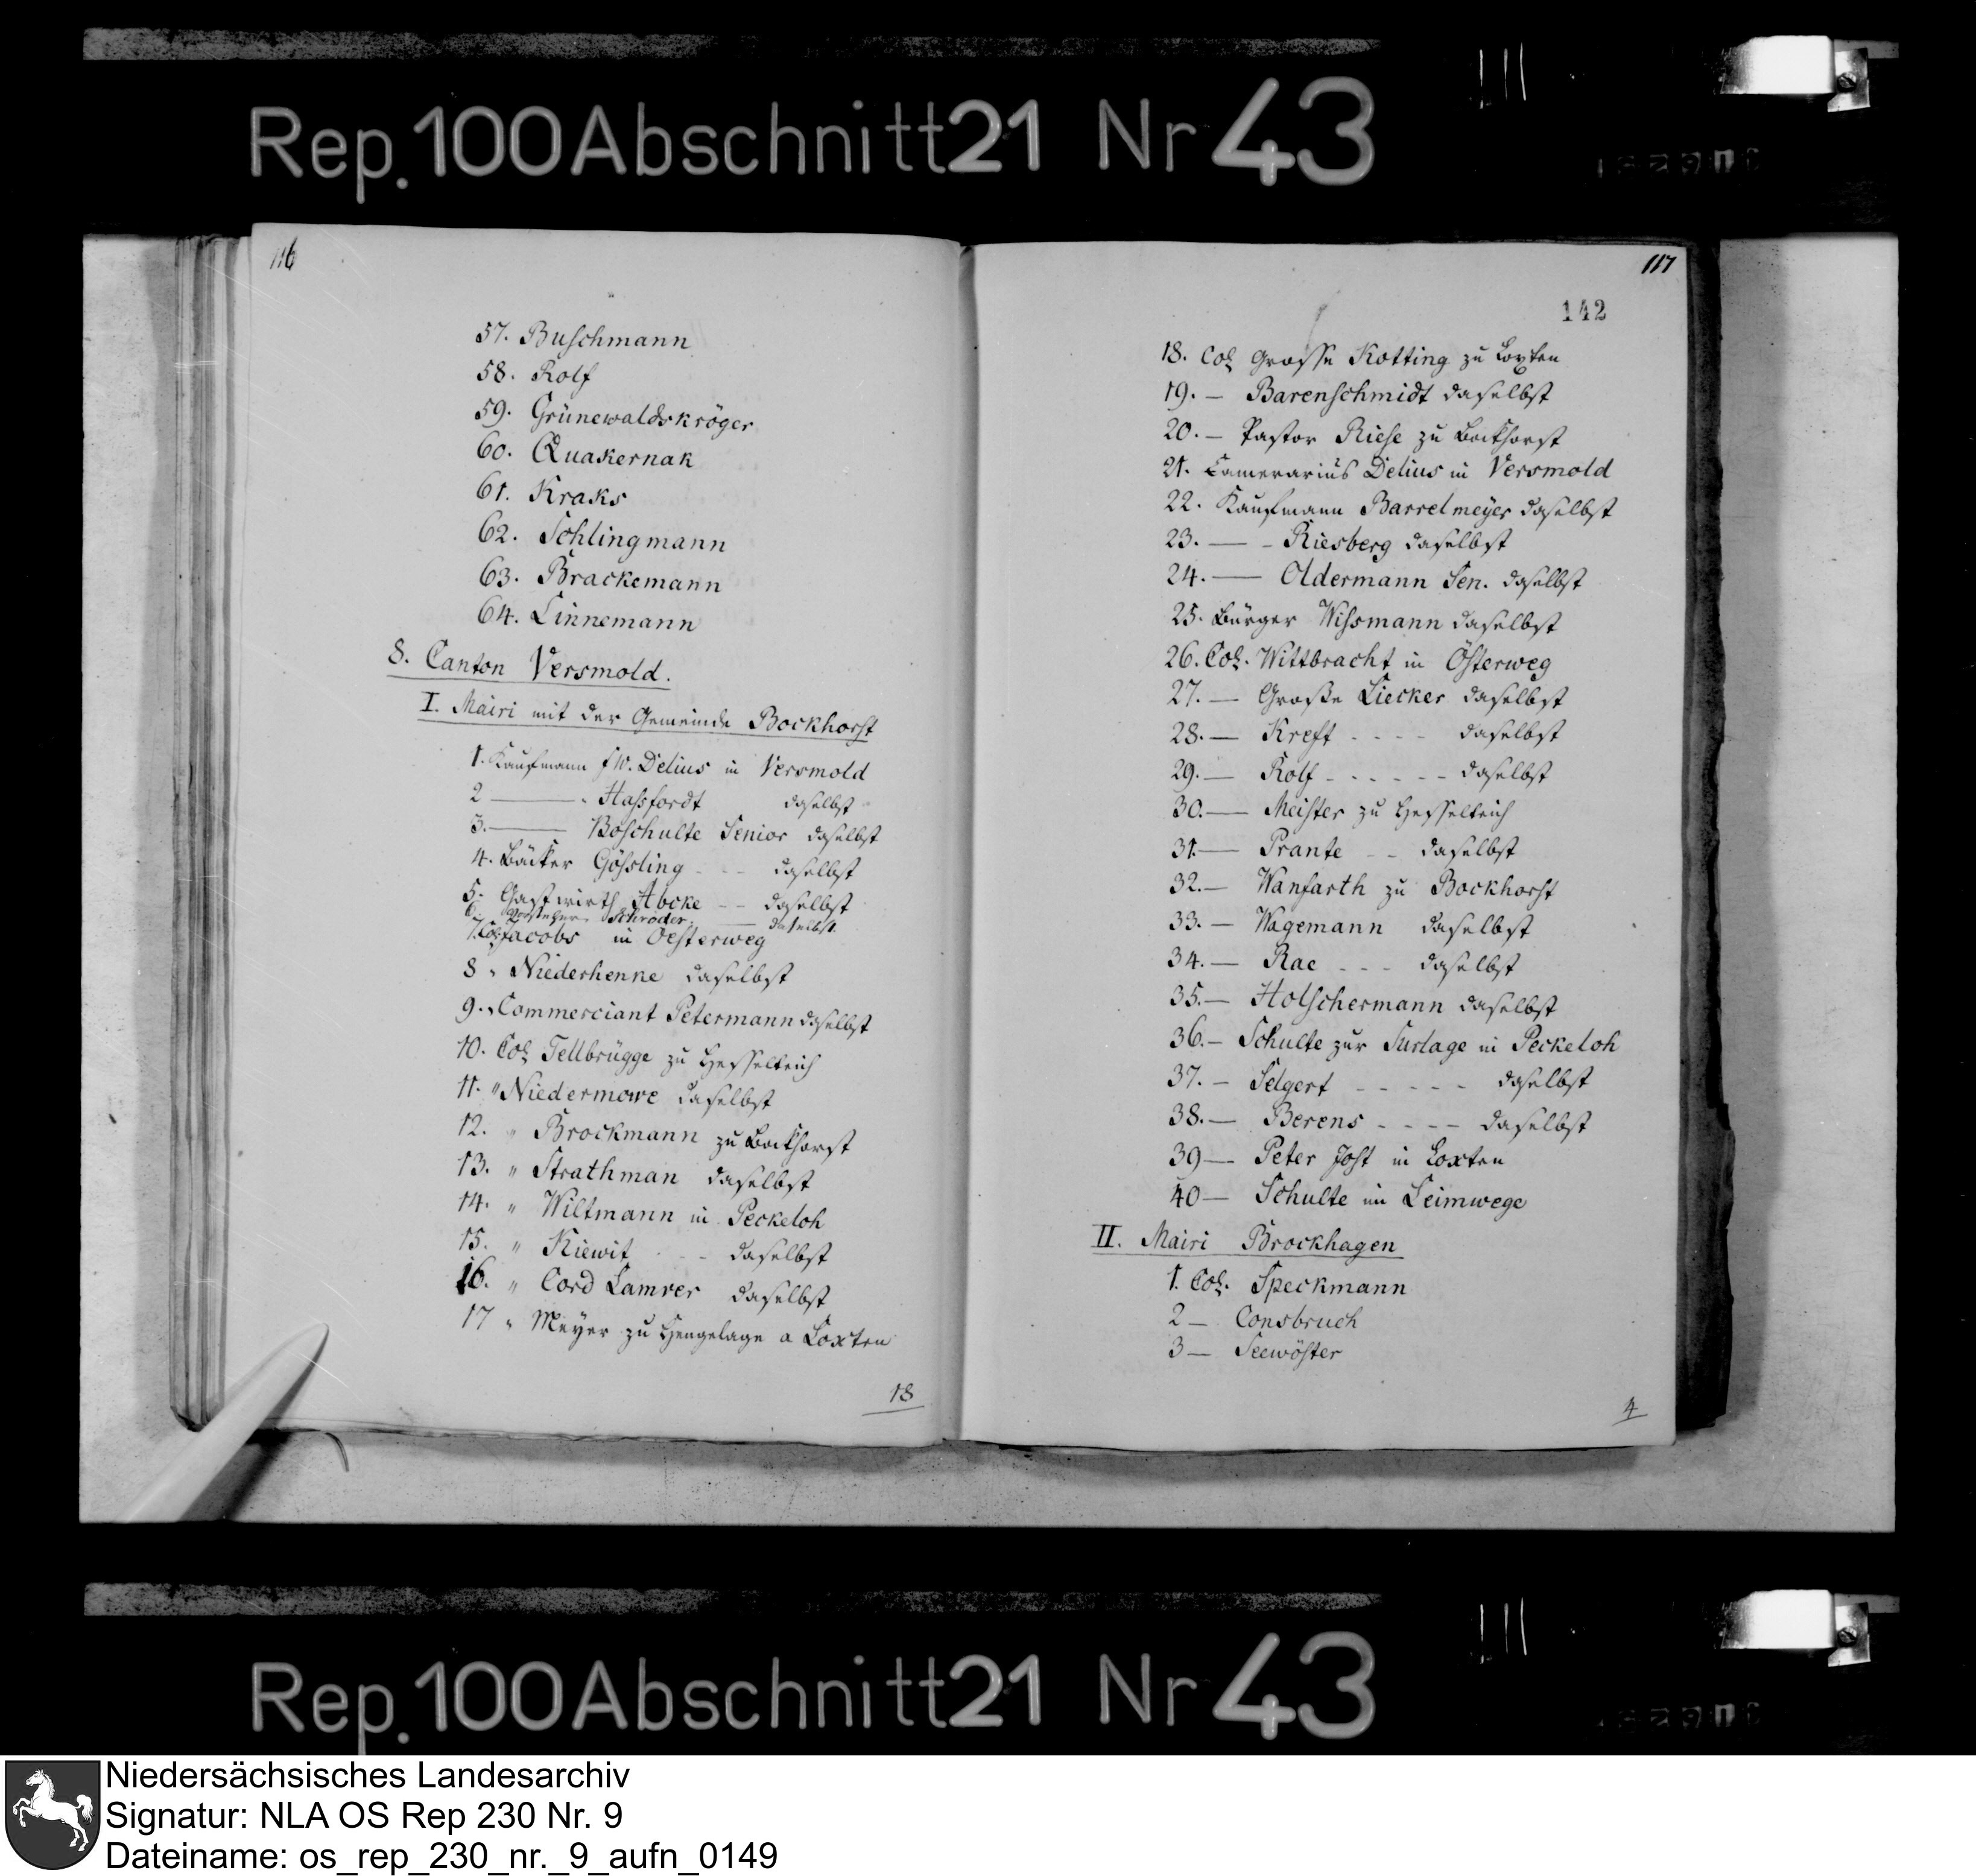 Rep. 100 Abschnitt 21 Nr 43
116
57. Buschmann
58. Rolf
59. Grünewaldskröger
60. Quakernak
61. Kraks
62. Schlingmann
63. Brackemann
64. Linnemann
8. Canton Versmold.
I. Mairi mit der Gemeinde Bockhorst
1. Kaufmann fw. Delius in Versmold
2 —— Hassfordt daselbst
3. —— Boschulte Senior daselbst
4. Bäcker Gössling - - daselbst
5. Gastwirth Abcke - - daselbst
6. Vorsteher Schröder —— daselbst
7. Col. Jacobs in Oesterweg
8 " Niederhenne daselbst
9. " Commerciant Petermann daselbst
10. Col Tellbrügge zu Hesselteich
11. " Niedermowe daselbst
12. " Brockmann zu Bockhorst
13. " Strathman daselbst
14. " Wiltmann in Peckeloh
15. " Kiewit - - daselbst
16. " Cord Lamver daselbst
17 " Meyer zu Hengelage a Loxten
18
117
142
18. Col Grosse Kotting zu Loxten
19. — Barenschmidt daselbst
20. — Pastor Riese zu Bockhorst
21. Camerarius Delius in Versmold
22. Kaufmann Barrelmeyer daselbst
23. —— Riesberg daselbst
24. —— Oldermann Sen. daselbst
25. Bürger Wissmann daselbst
26. Col. Wittbracht in Österweg
27. — Große Liecker daselbst
28. — Kreft - - - - daselbst
29. — Rolf - - - - - - daselbst
30. — Meister zu Hesselteich
31. — Prante - - daselbst
32. — Wanfarth zu Bockhorst
33. — Wagemann daselbst
34. — Rae - - - daselbst
35. — Holschermann daselbst
36. — Schulte zur Surlage in Peckeloh
37. — Selgert - - - - - daselbst
38. — Berens - - - - daselbst
39 — Peter Jost in Loxten
40 — Schulte im Leimwege
II. Mairi Brockhagen
1. Col. Speckmann
2 — Consbruch
3 — Seewöster
4
Rep. 100 Abschnitt 21 Nr 43
Niedersächsisches Landesarchiv
Signatur: NLA OS Rep 230 Nr. 9
Dateiname: os_rep_230_nr._9_aufn_0149